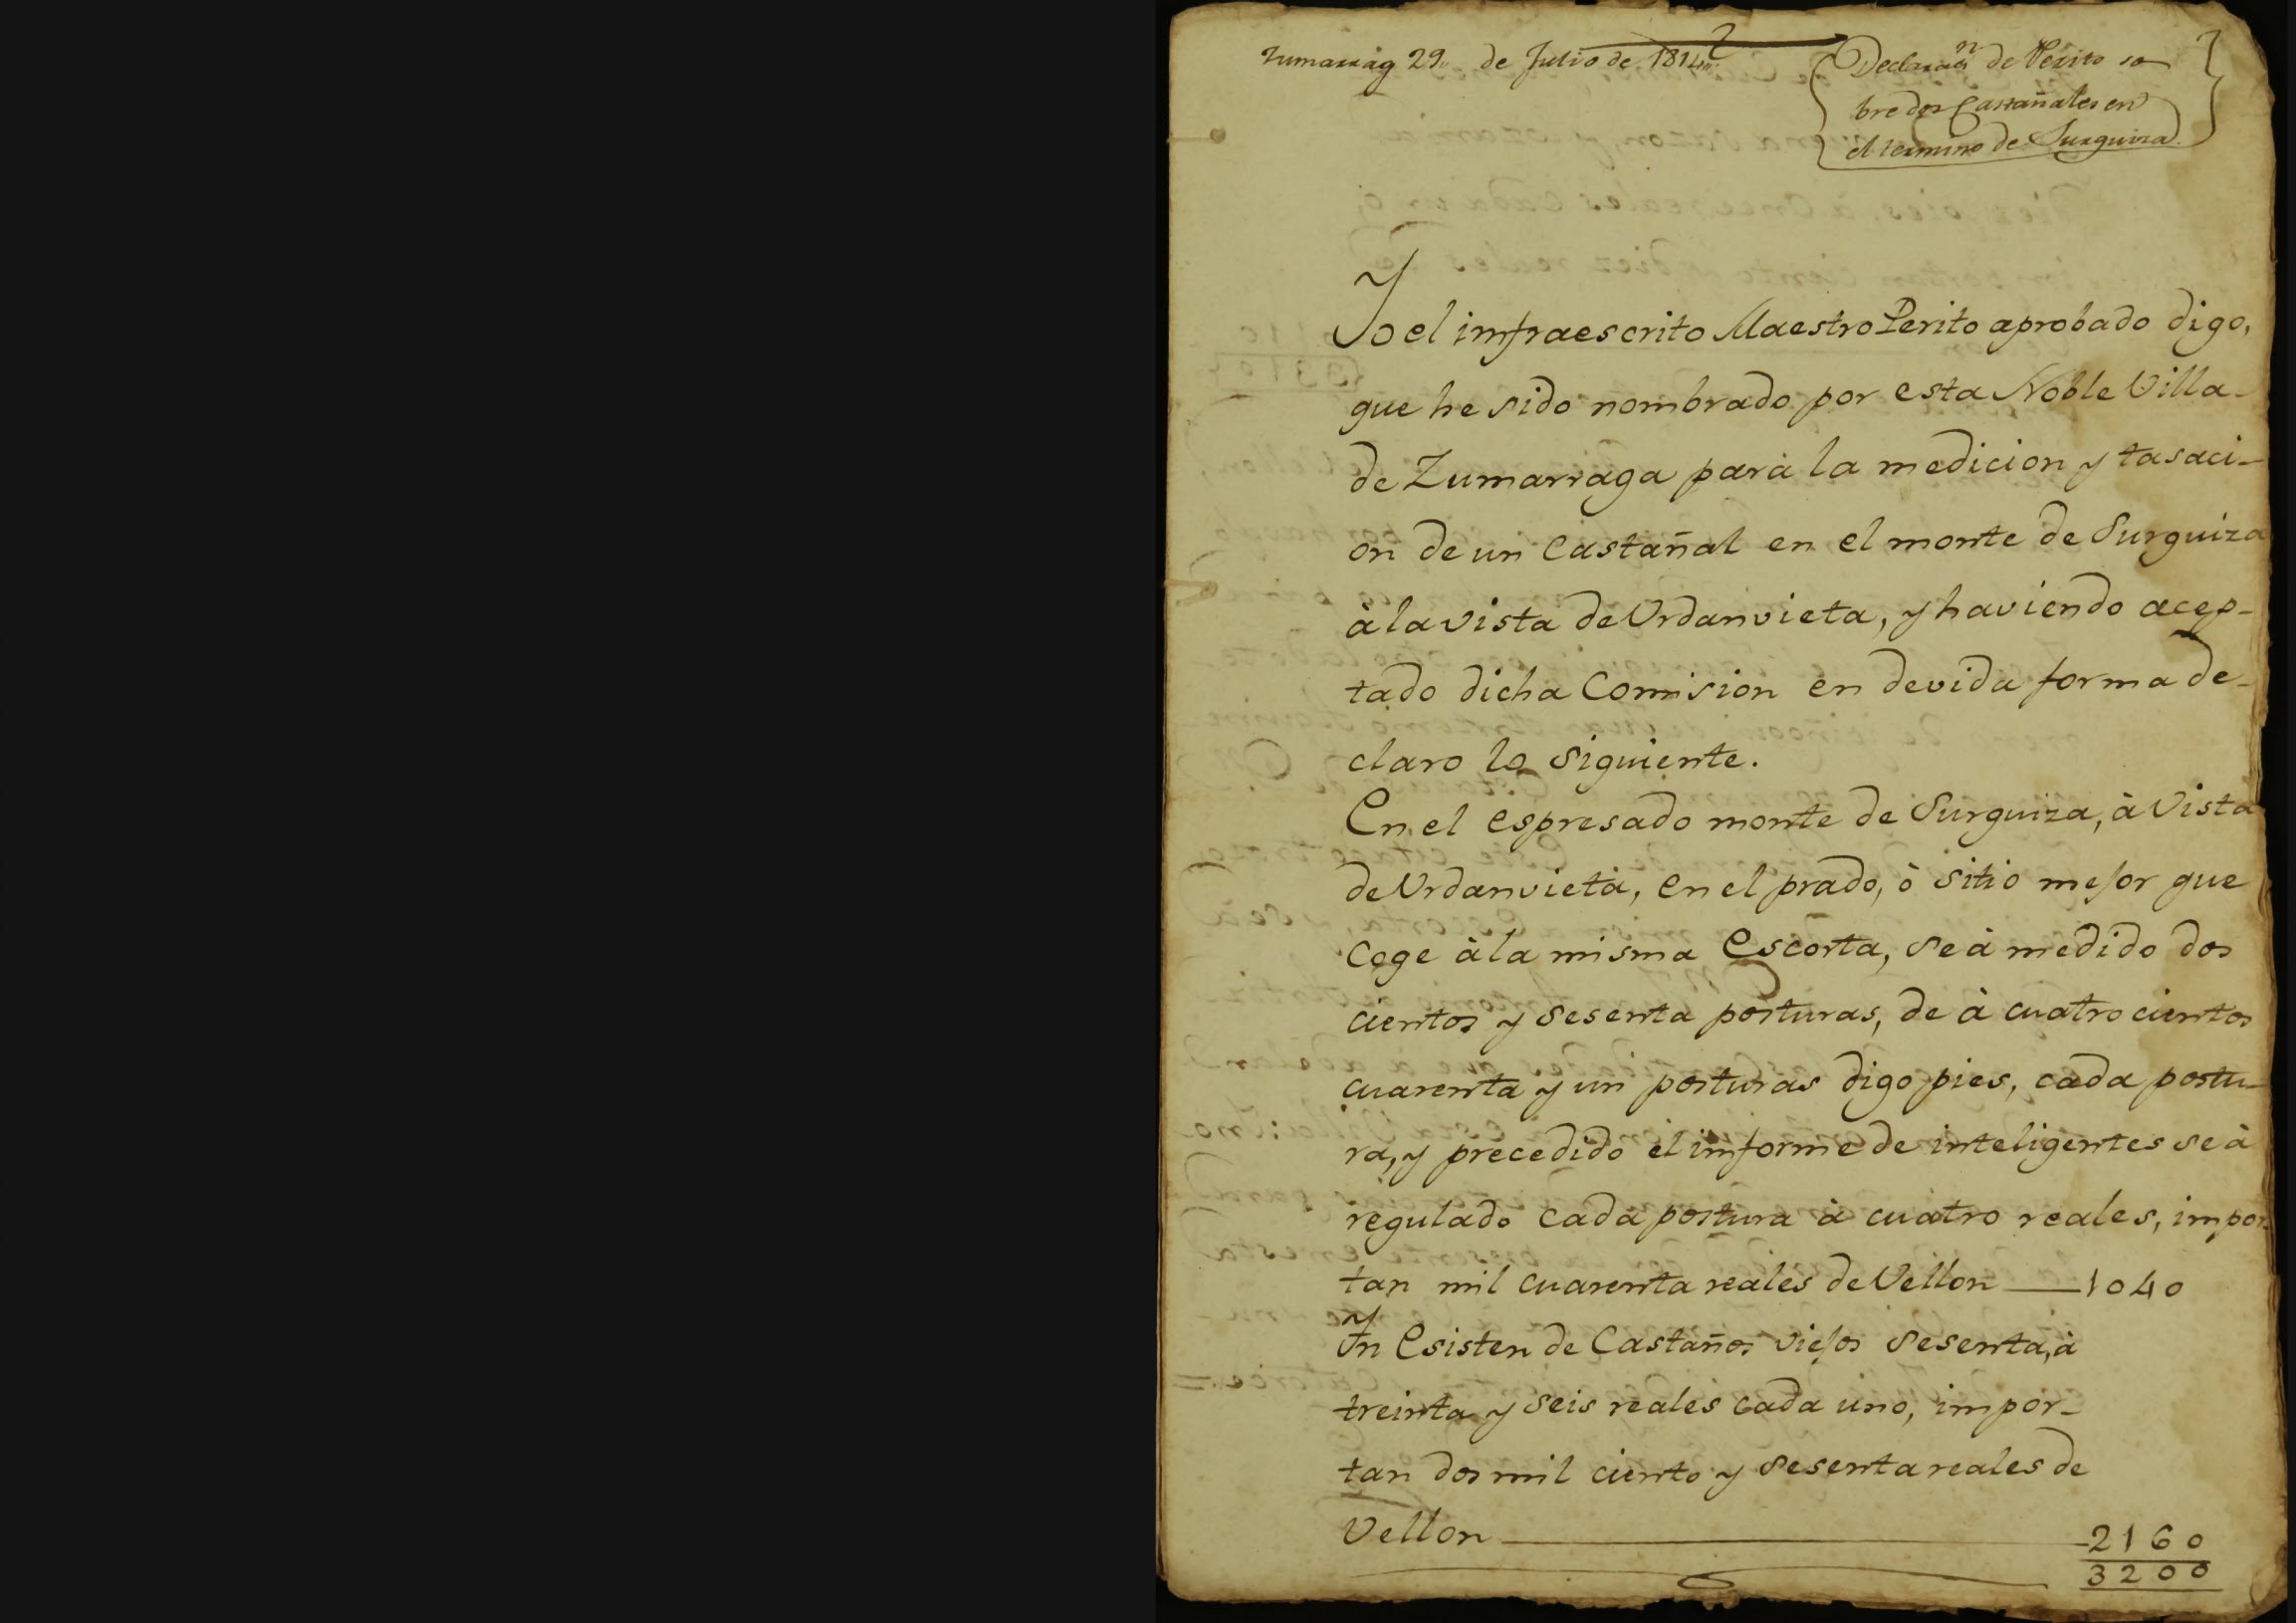 Zumarrag 29. de Julio de 1814.
Declaracn de Perito so
bre dos Castañales en
el termino de Surguiza
Yo el imfraescrito Maestro Perito aprobado digo,
que he sido nombrado por esta Noble Villa
de Zumarraga para la medicion y tasaci-
on de un Castañal en el monte de Surguiza
à la vista de Urdanvieta, y haviendo acep-
tado dicha Comision en devida forma de-
claro lo siguiente.
En el espresado monte de Surguiza, à vista
de Urdanvieta, en el prado, ò sitio mejor que
coge à la misma Escorta, se à medido dos
cientos y sesenta posturas, de à cuatro cientos
cuarenta y un posturas digo pies, cada postu-
ra, y precedido el imforme de inteligentes se à
regulado cada postura à cuatro reales, impor-
tan mil cuarenta reales de Vellon — 1040
Ytn Esisten de Castaños viejos sesenta, à
treinta y seis reales cada uno, impor-
tan dos mil ciento y sesenta reales de
Vellon — 2160
3200